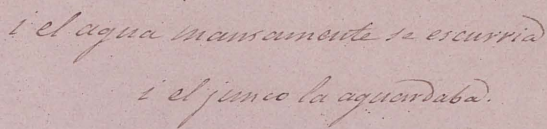 i el agua mansamente se escurria
i el junco la aguardaba.